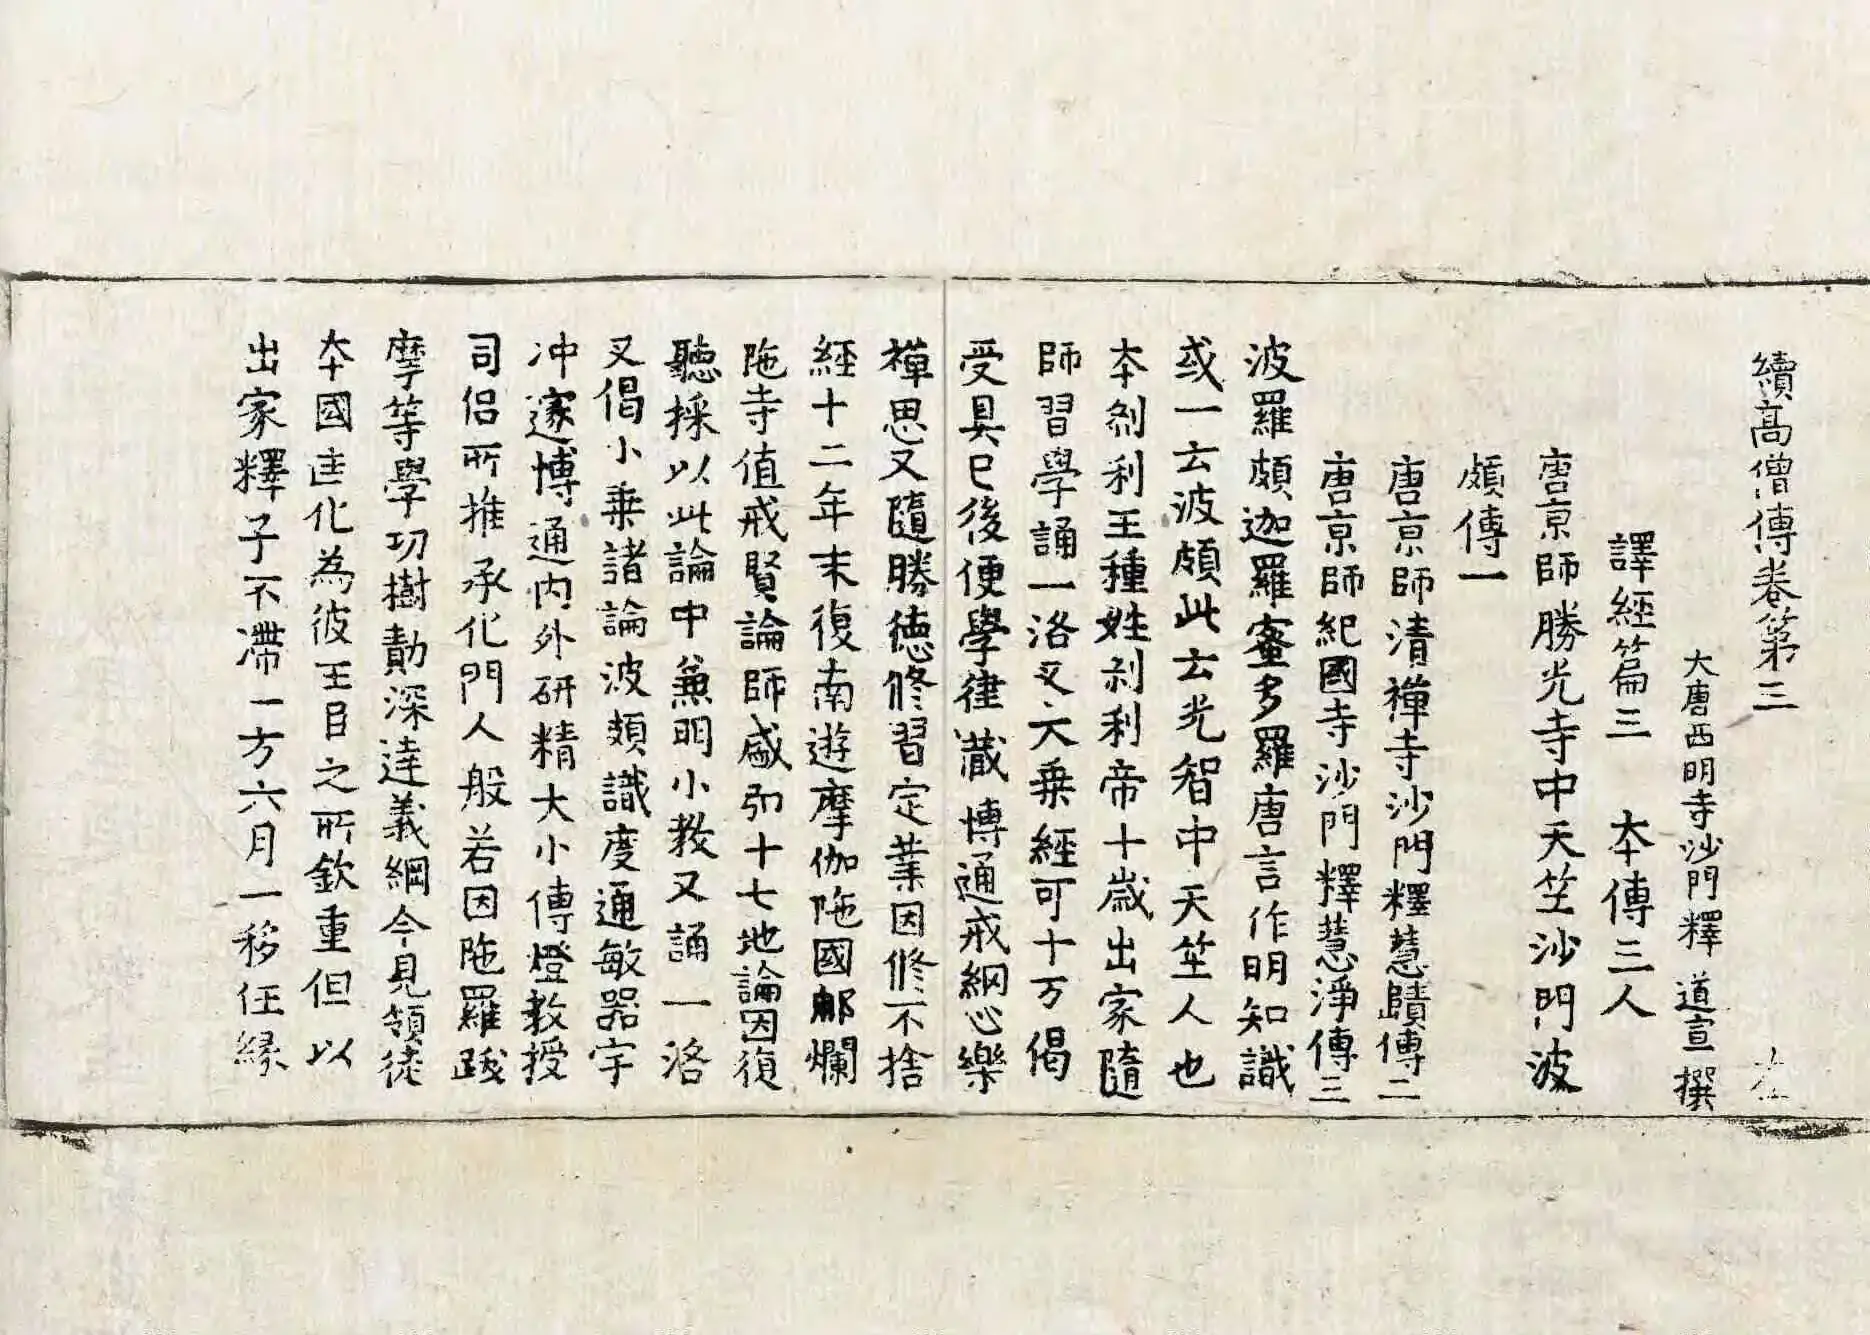 續高僧傳卷第三　左
大唐西明寺沙門釋道宣撰
譯經篇三　本傳三人
唐京師勝光寺中天竺沙門波
頗傳一
唐京師清禪寺沙門釋慧賾傳二
唐京師紀國寺沙門釋慧淨傳三
波羅頗迦羅蜜多羅唐言作明知識
或一云波頗此云光智中天竺人也
本剎利王種姓剎利帝十歲出家隨
師習學誦一洛叉大乘經可十万偈
受具已後便學律藏博通戒綱心樂
禪思又隨勝德修習定業因修不捨
經十二年末復南遊摩伽陁國那爛
陁寺值戒賢論師盛弘十七地論因復
聽採以此論中兼明小教又誦一洛
叉偈小乘諸論波頗識度通敏器宇
冲邃博通內外研精大小傳燈教授
司侶所推承化門人般若因陁羅跋
摩等學功樹勣深達義綱今見領徒
本國匡化為彼王臣之所欽重但以
出家釋子不滯一方六月一移任緣